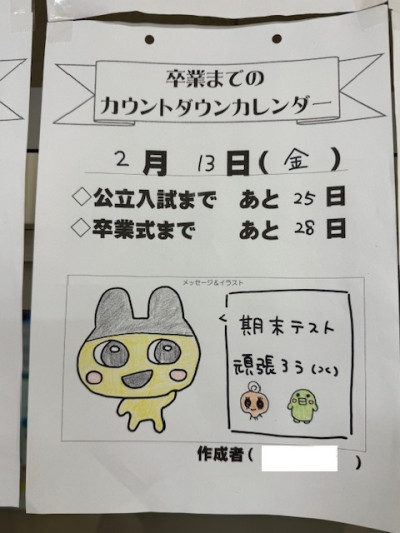 卒業までの
カウントダウンカレンダー
2月 13日(金)
◇公立入試まで あと 25 日
◇卒業式まで あと 28 日
メッセージ&イラスト
期末テスト
頑張ろう
作成者( )